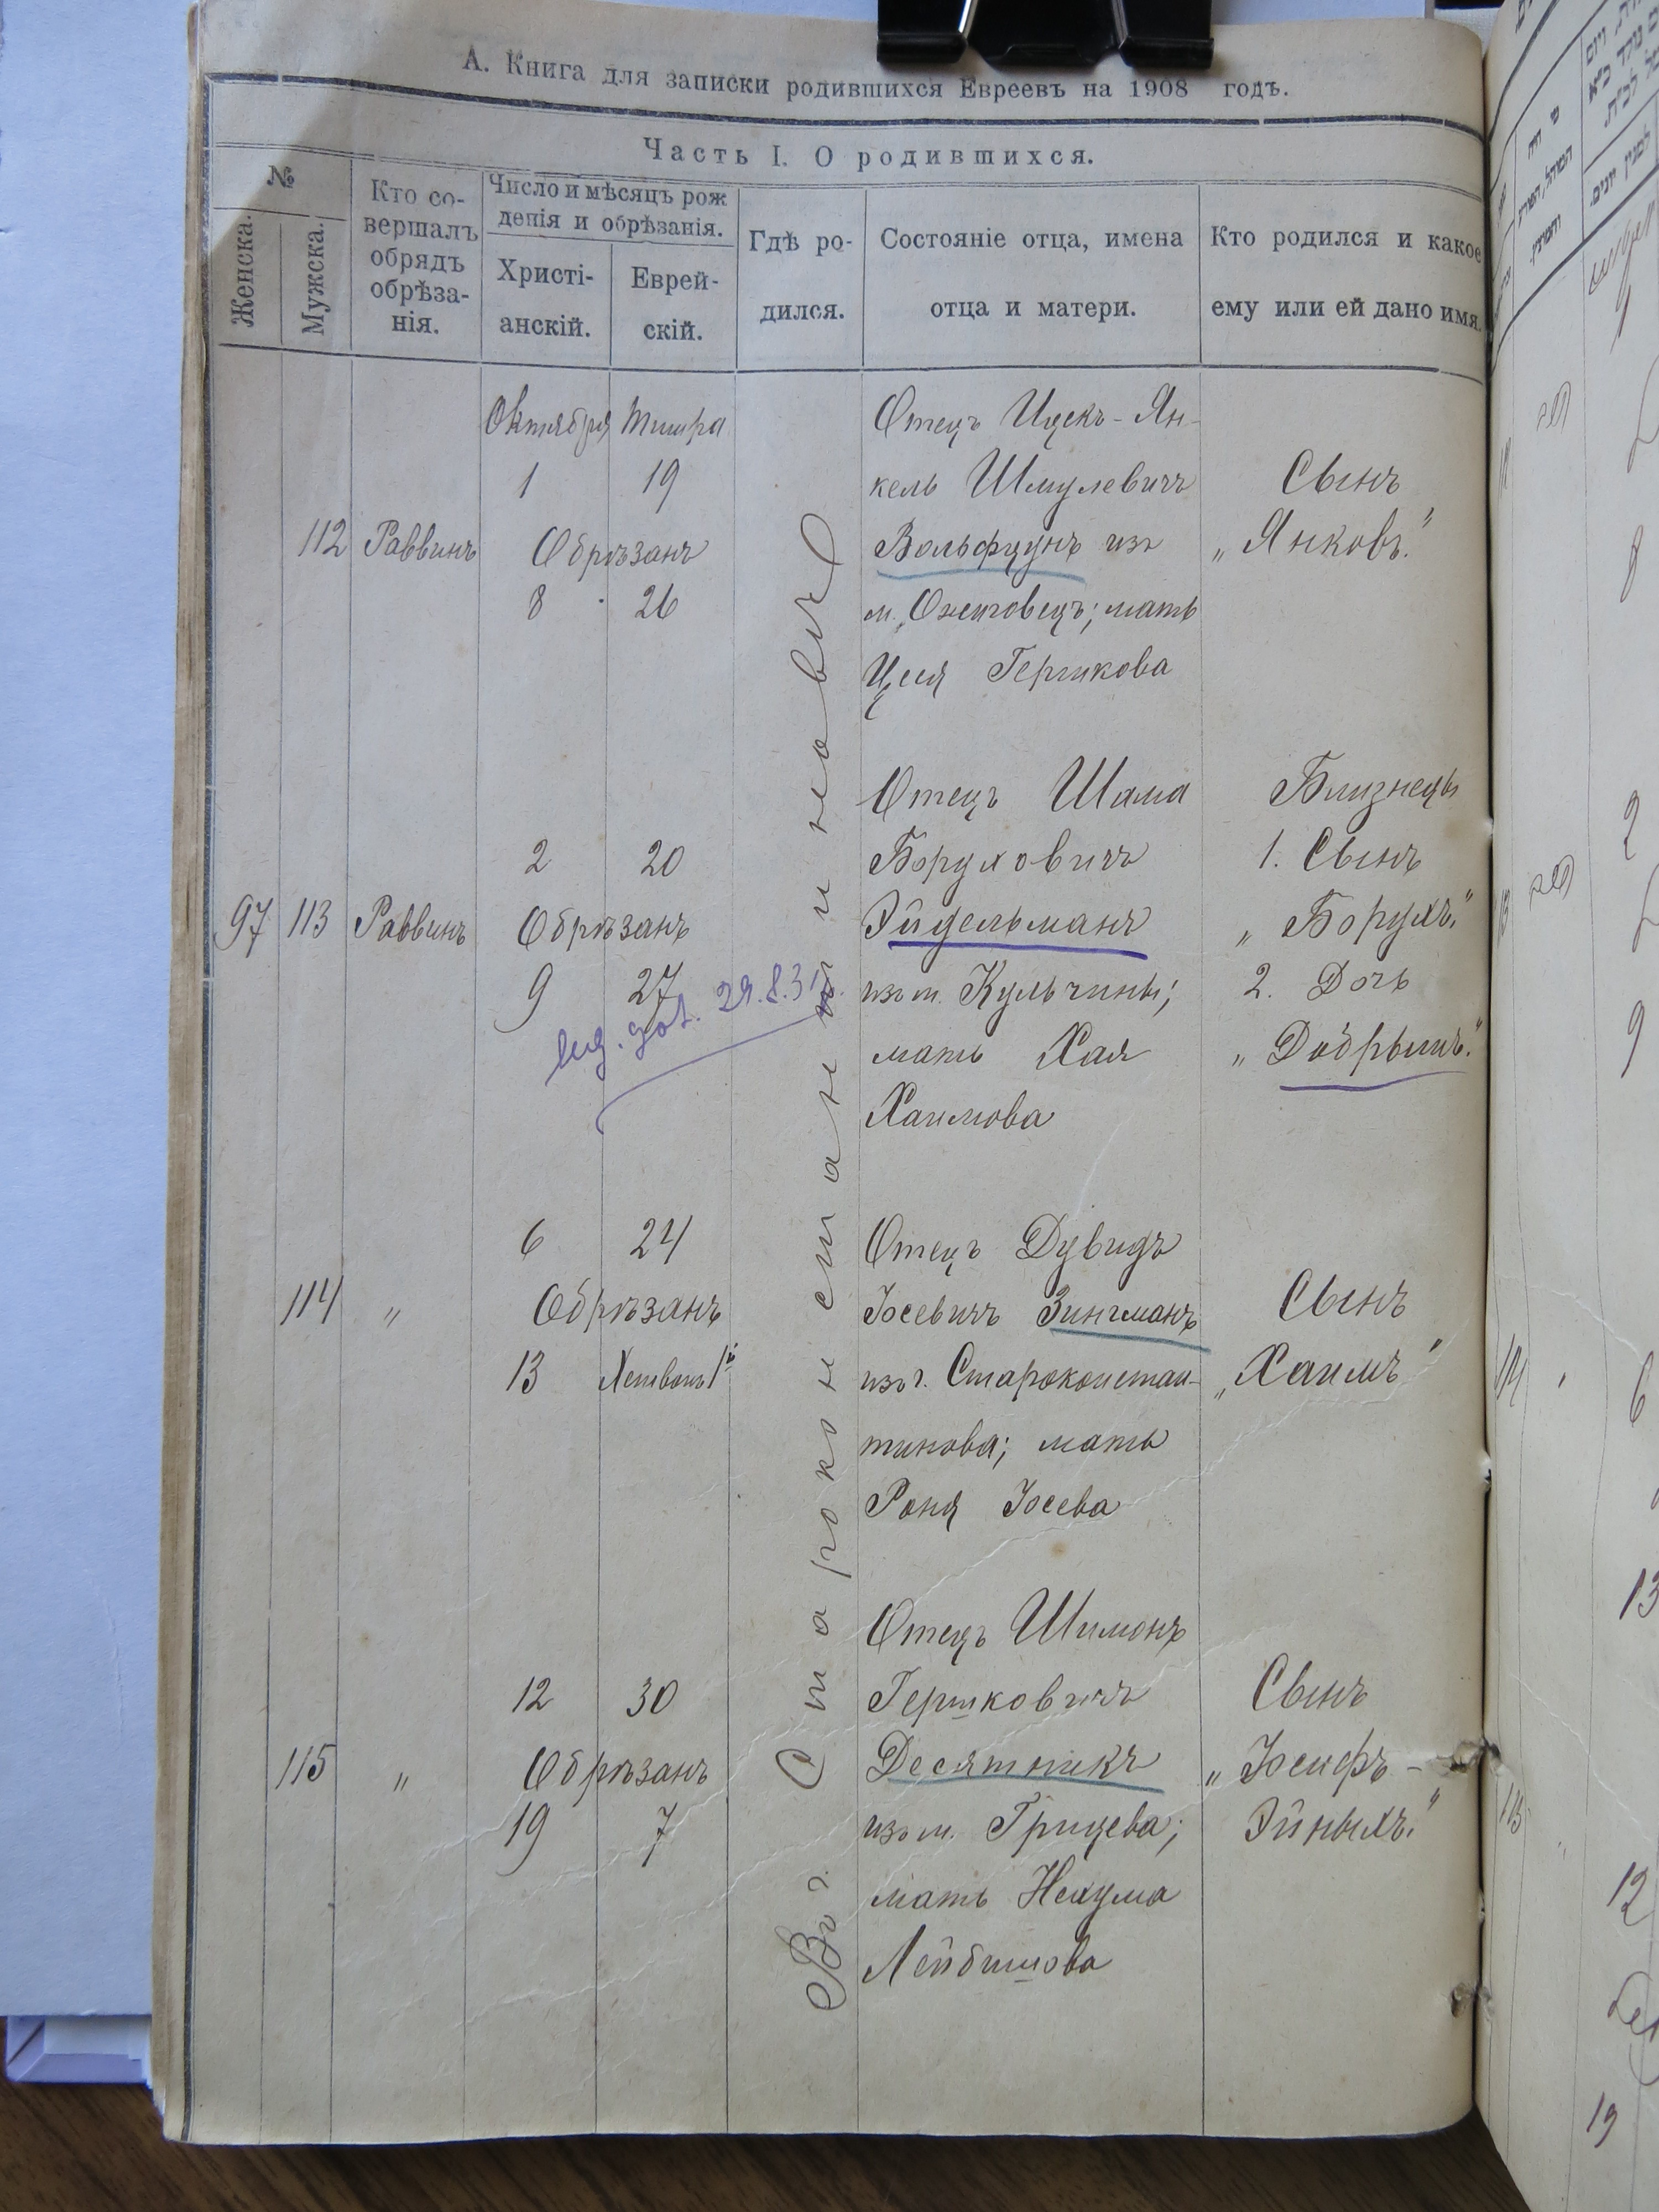 А. Книга для записки родившихся Евреевъ на 1908 годъ.
Часть I. О родившихся.
№
Женска.
Мужска.
Кто со-
вершалъ
обрядъ
обрѣза-
нія.
Число и мѣсяцъ рож
денія и обрѣзанія.
Христі-
анскій.
Еврей-
скій.
Гдѣ ро-
дился.
Состояніе отца, имена
отца и матери.
Кто родился и какое
ему или ей дано имя.
Въ г. Староконстантиновѣ
Октября Тишра
1 19
112 Раввинъ Обрѣзанъ
8 26
Отецъ Ицекъ-Ян-
кель Шмулевичъ
Вольфцунъ изъ
м. Ожиговецъ; мать
Цыя Гершкова
Сынъ
„Янковъ."
2 20
97 113 Раввинъ Обрѣзанъ
9 27
29.8.31
Отецъ Шама
Боруховичъ
Эйдельманъ
изъ м. Кульчины;
мать Хая
Хаимова
Близнецы
1. Сынъ
„Борухъ."
2. Дочь
„Добрышъ."
6 24
114 " Обрѣзанъ
13 Хешвонъ 1й
Отецъ Дувидъ
Іосевичъ Зингманъ
изъ г. Староконстан-
тинова; мать
Роня Іосева
Сынъ
„Хаимъ"
12 30
115 " Обрѣзанъ
19 7
Отецъ Шимонъ
Гершковичъ
Десятникъ
изъ м. Грицева;
мать Нехума
Лейбишова
Сынъ
„Іосифъ-
Эйныхъ."